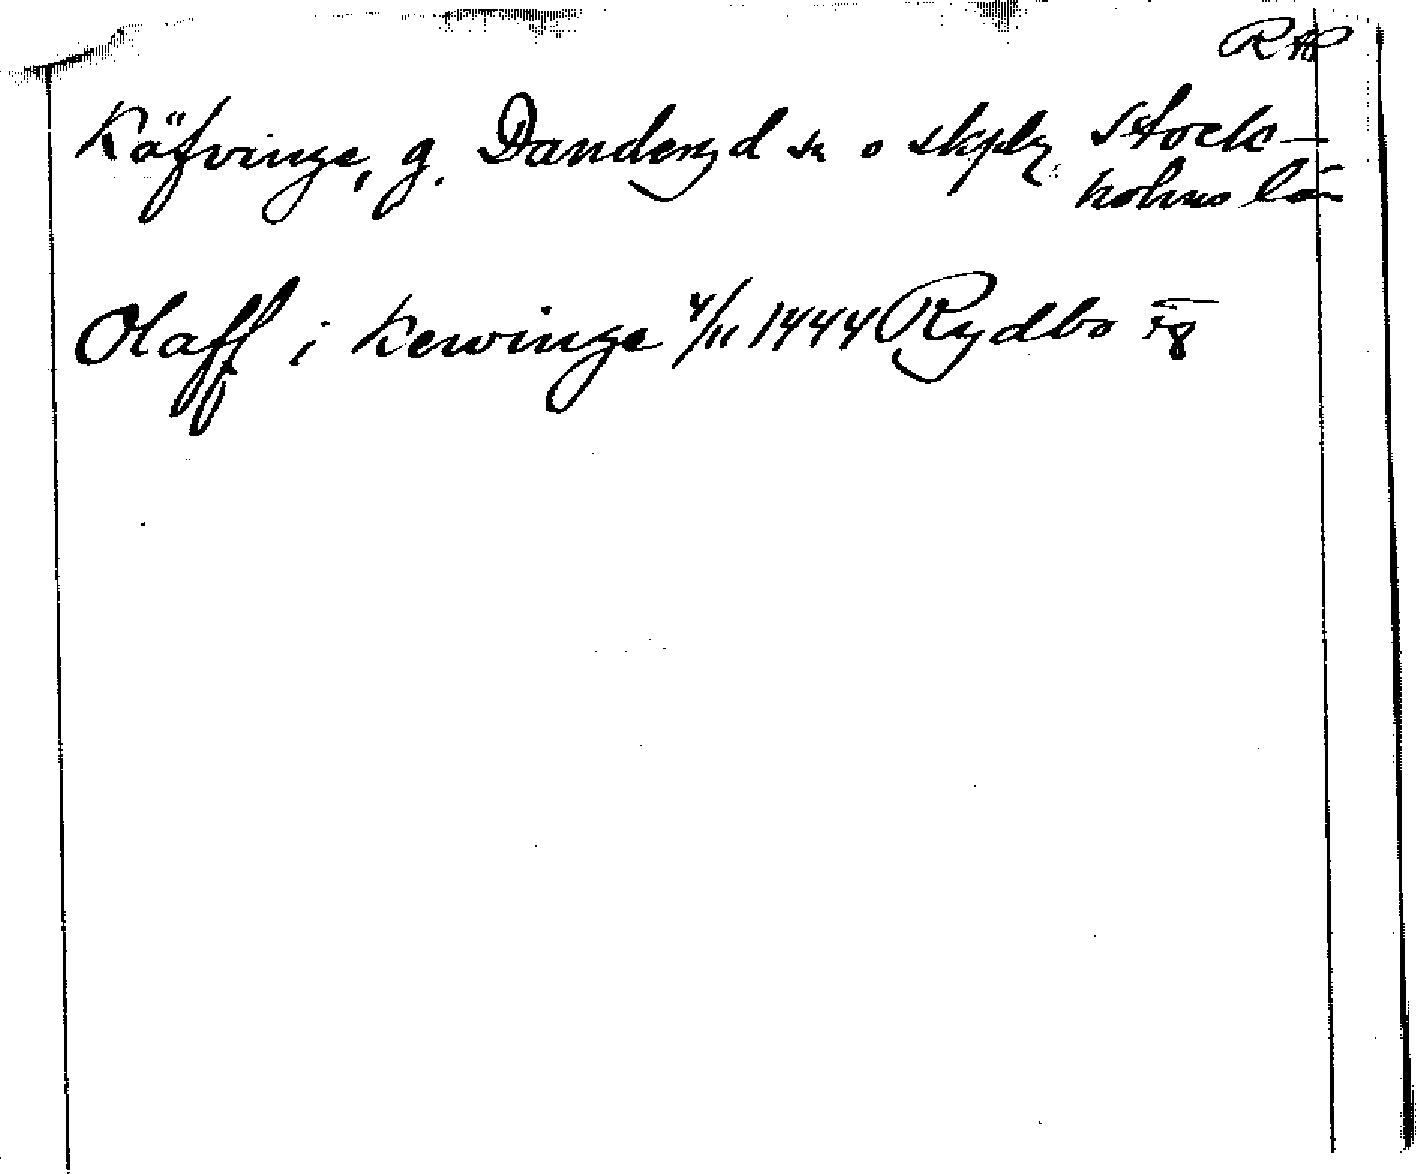 RAP
Käfvinge, g. Danderyd sn o skplg. Stock-
holms län
Olaff i Kewinge 4/11 1444 Rydbo